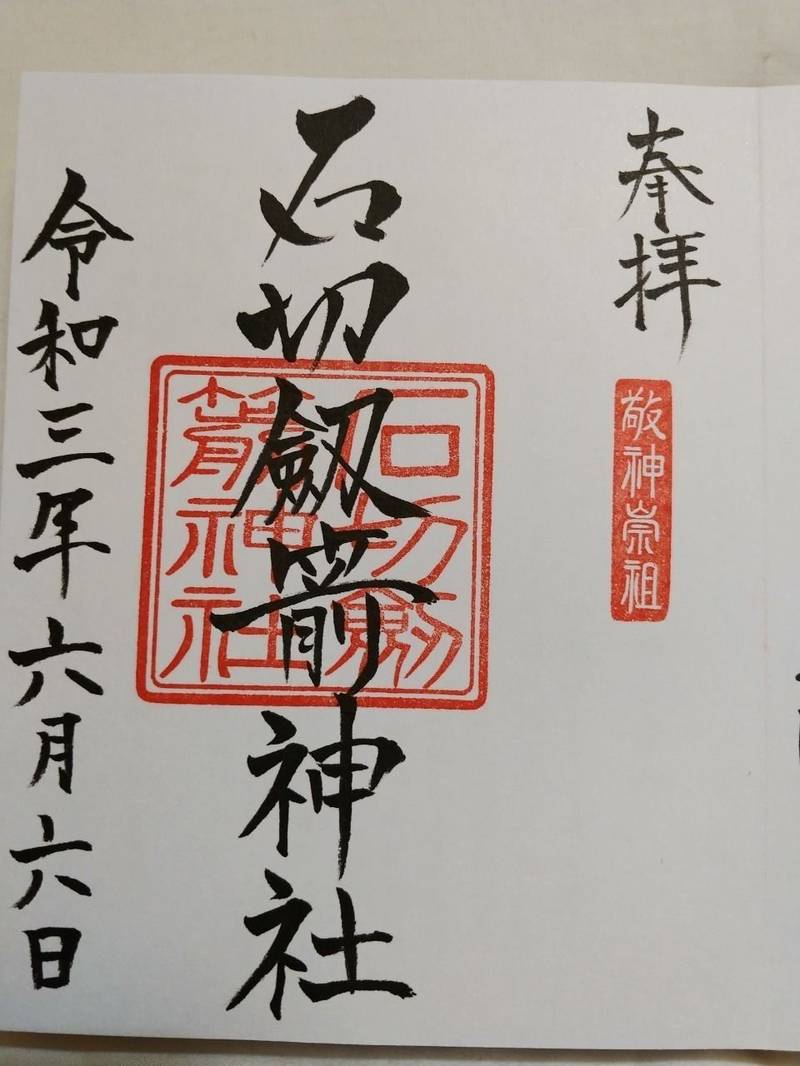 奉拝
敬神崇祖
石切劔箭神社
石切劔
箭神社
令和三年六月六日